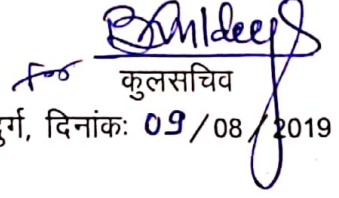 For
कुलसचिव
दुर्ग, दिनांकः 09/08/2019